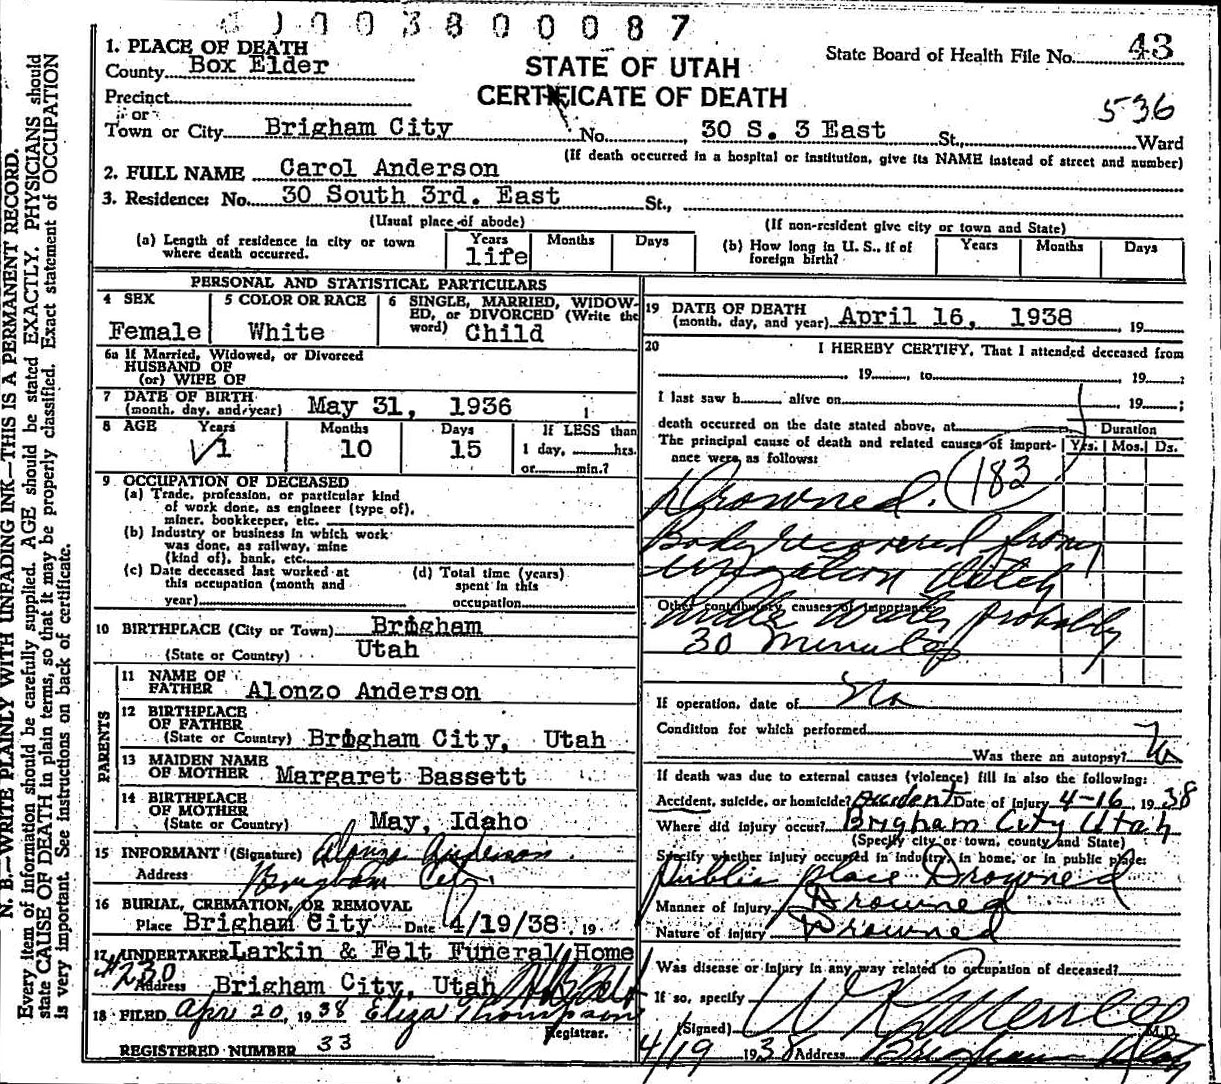 003800087
1. PLACE OF DEATH
County Box Elder
STATE OF UTAH
State Board of Health File No. 43
Precinct
CERTIFICATE OF DEATH
or
536
Town or City Brigham City No. 30 S. 3 East St., Ward
(If death occurred in a hospital or institution, give its NAME instead of street and number)
2. FULL NAME Carol Anderson
3. Residence: No. 30 South 3rd. East St.,
(Usual place of abode) (If non-resident give city or town and State)
(a) Length of residence in city or town where death occurred. Years life Months Days
(b) How long in U. S., if of foreign birth? Years Months Days
PERSONAL AND STATISTICAL PARTICULARS
4 SEX Female
5 COLOR OR RACE White
6 SINGLE, MARRIED, WIDOW-
ED, or DIVORCED (Write the
word) Child
6a If Married, Widowed, or Divorced
HUSBAND OF
(or) WIFE OF
7 DATE OF BIRTH
(month, day, and year) May 31, 1936
8 AGE Years Months Days If LESS than
1 10 15 1 day, hrs.
or min.?
9 OCCUPATION OF DECEASED
(a) Trade, profession, or particular kind
of work done, as engineer (type of),
miner, bookkeeper, etc.
(b) Industry or business in which work
was done, as railway, mine
(kind of), bank, etc.
(c) Date deceased last worked at
this occupation (month and
year)
(d) Total time (years)
spent in this
occupation
10 BIRTHPLACE (City or Town) Brigham
(State or Country) Utah
PARENTS
11 NAME OF
FATHER Alonzo Anderson
12 BIRTHPLACE
OF FATHER
(State or Country) Brigham City, Utah
13 MAIDEN NAME
OF MOTHER Margaret Bassett
14 BIRTHPLACE
OF MOTHER
(State or Country) May, Idaho
15 INFORMANT (Signature) Alonzo Anderson
Address Brigham City
16 BURIAL, CREMATION, OR REMOVAL
Place Brigham City Date 4/19/38, 19
17 UNDERTAKER Larkin & Felt Funeral Home
#230
Address Brigham City, Utah
18 FILED Apr 20, 1938 Eliza Thompson
Registrar.
REGISTERED NUMBER 33
19 DATE OF DEATH
(month, day, and year) April 16, 1938, 19
20 I HEREBY CERTIFY, That I attended deceased from
, 19, to, 19;
I last saw h alive on, 19;
death occurred on the date stated above, at Duration
The principal cause of death and related causes of import- Yrs. Mos. Ds.
ance were as follows:
Drowned. (183)
Body recovered from
irrigation ditch
Other contributory causes of importance:
Under Water probably
30 Minutes
If operation, date of No
Condition for which performed
Was there an autopsy? No
If death was due to external causes (violence) fill in also the following:
Accident, suicide, or homicide? Accident Date of injury 4-16, 1938
Where did injury occur? Brigham City Utah
(Specify city or town, county and State)
Specify whether injury occurred in industry, in home, or in public place:
Public place Drowned
Manner of injury Drowned
Nature of injury Drowned
Was disease or injury in any way related to occupation of deceased?
If so, specify
(Signed) M.D.
4/19 1938 Address Brigham Utah
N. B.—WRITE PLAINLY WITH UNFADING INK—THIS IS A PERMANENT RECORD.
Every item of information should be carefully supplied. AGE should be stated EXACTLY. PHYSICIANS should
state CAUSE OF DEATH in plain terms, so that it may be properly classified. Exact statement of OCCUPATION
is very important. See instructions on back of certificate.